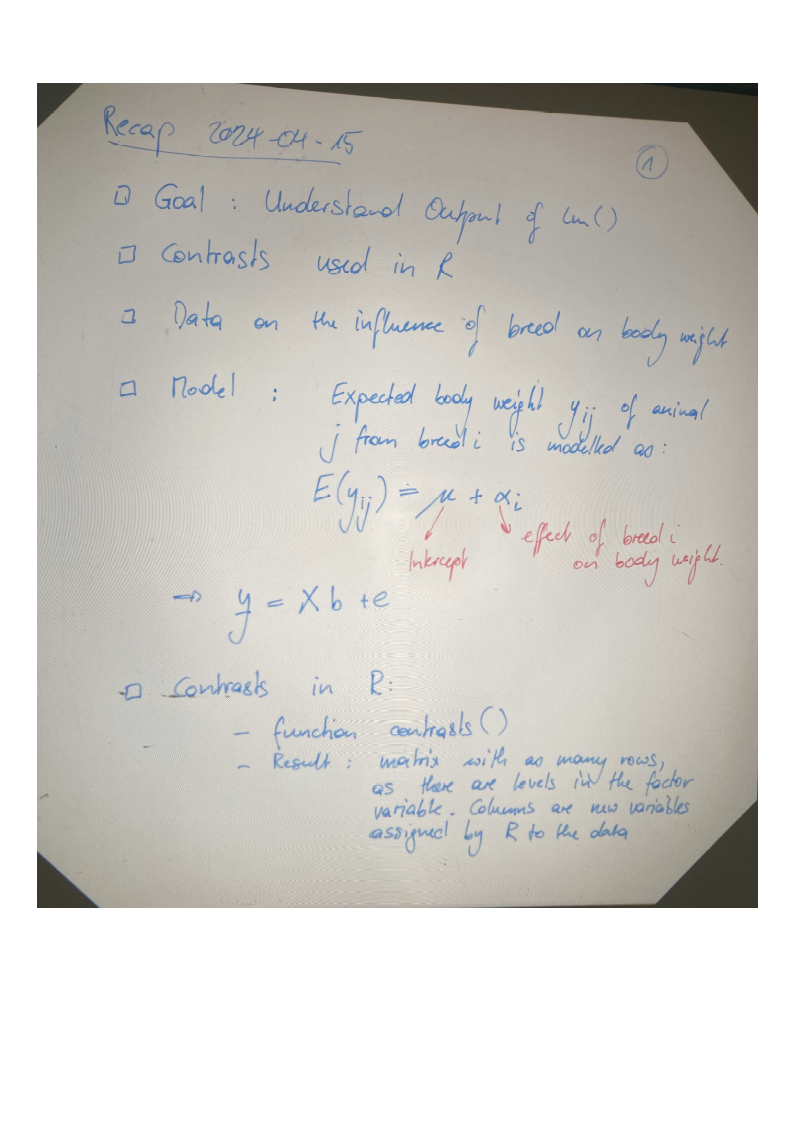 Recap 2024-04-15
1
□ Goal : Understand Output of lm()
□ Contrasts used in R
□ Data on the influence of breed on body weight
□ Model : Expected body weight yij of animal
j from breed i is modelled as :
E(yij) = μ + αi
effect of breed i
Intercept on body weight.
⇒ y = Xb + e
□ Contrasts in R:
– function contrasts()
– Result : matrix with as many rows,
as there are levels in the factor
variable. Columns are new variables
assigned by R to the data